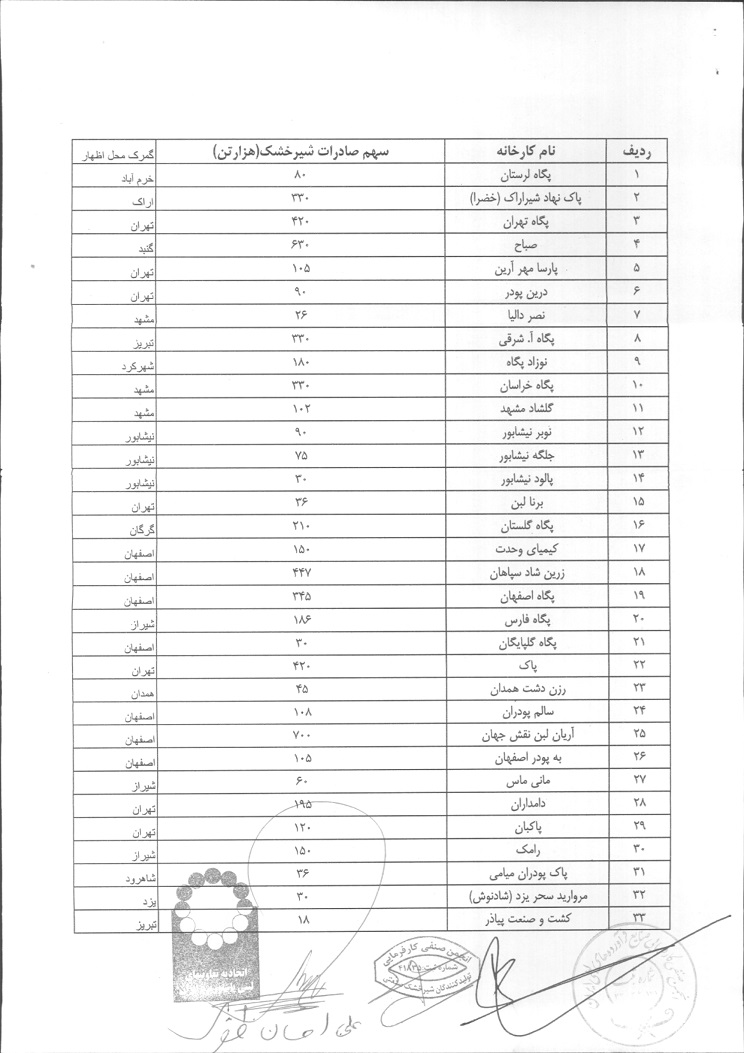 ردیف نام کارخانه سهم صادرات شیرخشک(هزارتن) گمرک محل اظهار
۱ پگاه لرستان ۸۰ خرم آباد
۲ پاک نهاد شیراراک (خضرا) ۳۳۰ اراک
۳ پگاه تهران ۴۲۰ تهران
۴ صباح ۶۳۰ گنبد
۵ پارسا مهر آرین ۱۰۵ تهران
۶ درین پودر ۹۰ تهران
۷ نصر دالیا ۲۶ مشهد
۸ پگاه آ. شرقی ۳۳۰ تبریز
۹ نوزاد پگاه ۱۸۰ شهرکرد
۱۰ پگاه خراسان ۳۳۰ مشهد
۱۱ گلشاد مشهد ۱۰۲ مشهد
۱۲ نوبر نیشابور ۹۰ نیشابور
۱۳ جلگه نیشابور ۷۵ نیشابور
۱۴ پالود نیشابور ۳۰ نیشابور
۱۵ برنا لبن ۳۶ تهران
۱۶ پگاه گلستان ۲۱۰ گرگان
۱۷ کیمیای وحدت ۱۵۰ اصفهان
۱۸ زرین شاد سپاهان ۴۴۷ اصفهان
۱۹ پگاه اصفهان ۳۴۵ اصفهان
۲۰ پگاه فارس ۱۸۶ شیراز
۲۱ پگاه گلپایگان ۳۰ اصفهان
۲۲ پاک ۴۲۰ تهران
۲۳ رزن دشت همدان ۴۵ همدان
۲۴ سالم پودران ۱۰۸ اصفهان
۲۵ آریان لبن نقش جهان ۷۰۰ اصفهان
۲۶ به پودر اصفهان ۱۰۵ اصفهان
۲۷ مانی ماس ۶۰ شیراز
۲۸ دامداران ۱۹۵ تهران
۲۹ پاکبان ۱۲۰ تهران
۳۰ رامک ۱۵۰ شیراز
۳۱ پاک پودران میامی ۳۶ شاهرود
۳۲ مروارید سحر یزد (شادنوش) ۳۰ یزد
۳۳ کشت و صنعت پیاذر ۱۸ تبریز
انجمن صنفی کارفرمایی
تولیدکنندگان شیرخشک
علی احسان